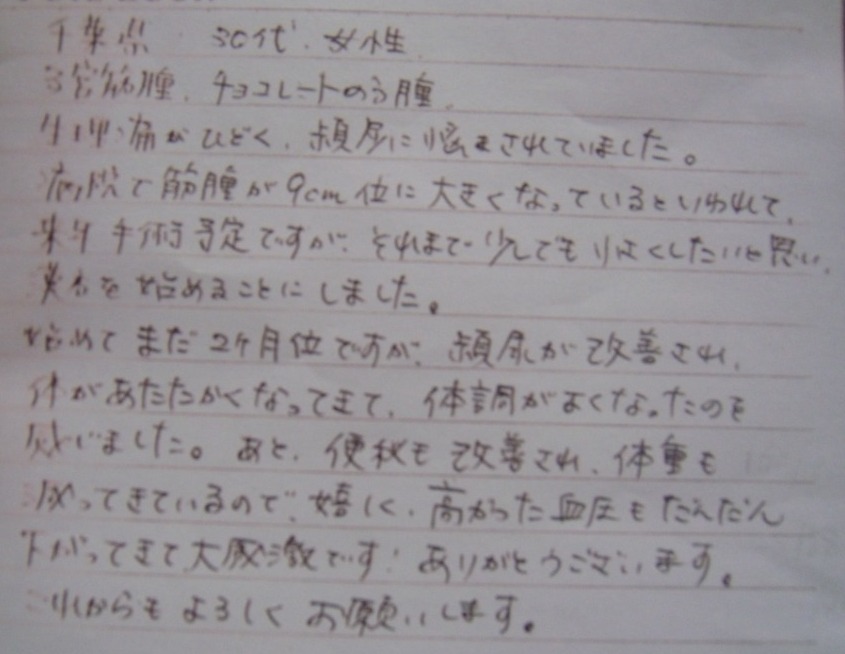 千葉県 30代 女性
子宮筋腫、チョコレートのう腫。
生理痛がひどく、頻尿に悩まされていました。
病院で筋腫が9cm位に大きくなっているといわれて、
来年手術予定ですが、それまで少しでも良くしたいと思い、
を始めることにしました。
始めてまだ2ヶ月位ですが、頻尿が改善され、
体があたたかくなってきて、体調がよくなったのを
感じました。あと、便秘も改善され、体重も
減ってきているので、嬉しく、高かった血圧もだんだん
下がってきて大感激です!ありがとうございます。
これからもよろしくお願いします。